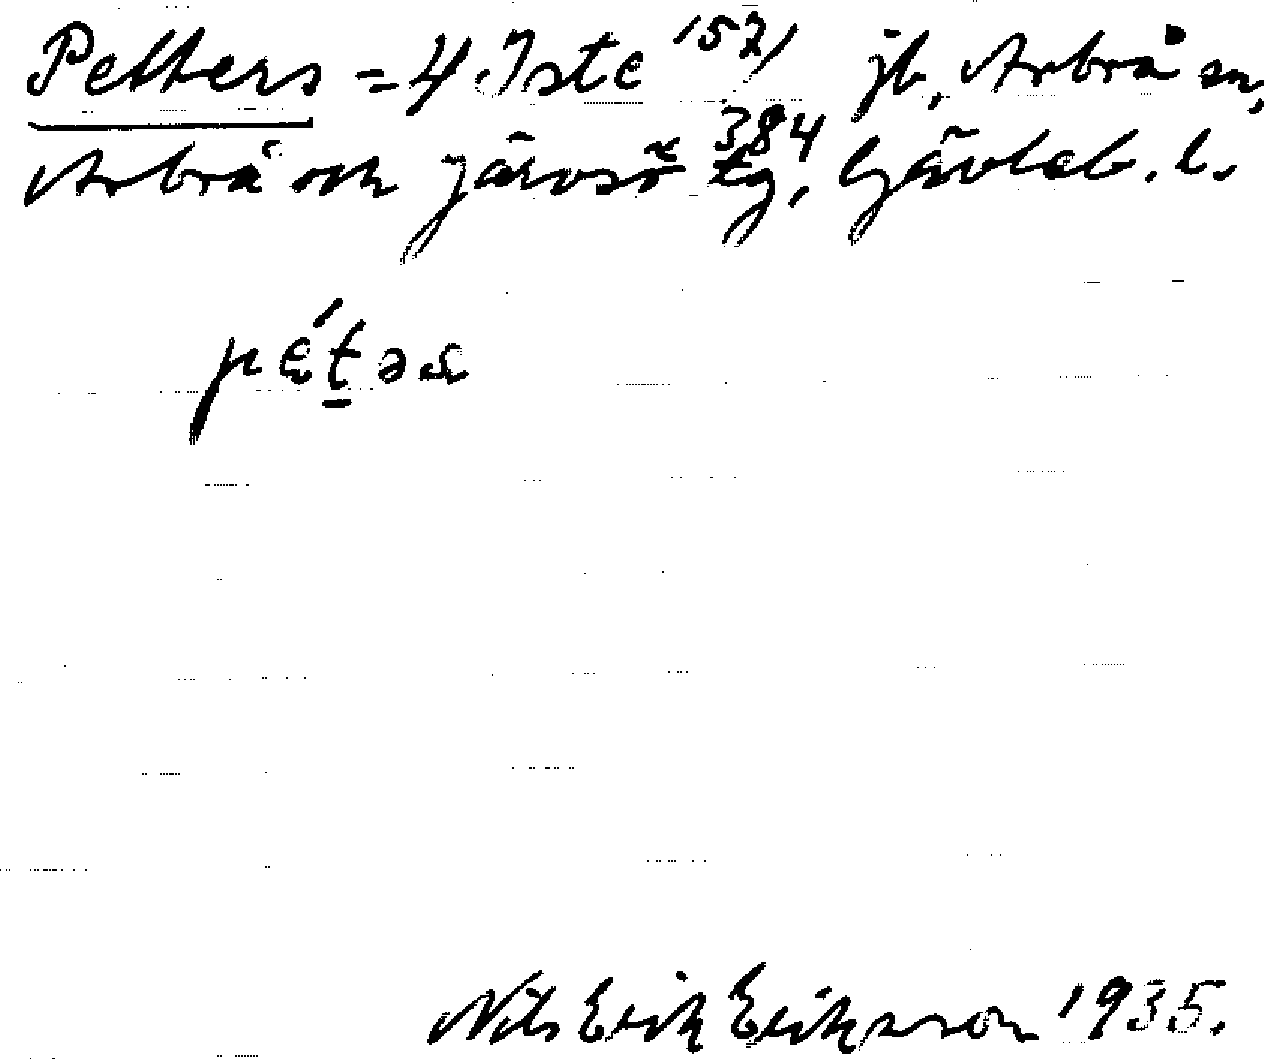 Petters = 4 Iste 157/384 jb, Arbrå sn,
Arbrå och Järvsö tg, Gävleb. l.
pétəs
Nils Erik Eriksson 1935.